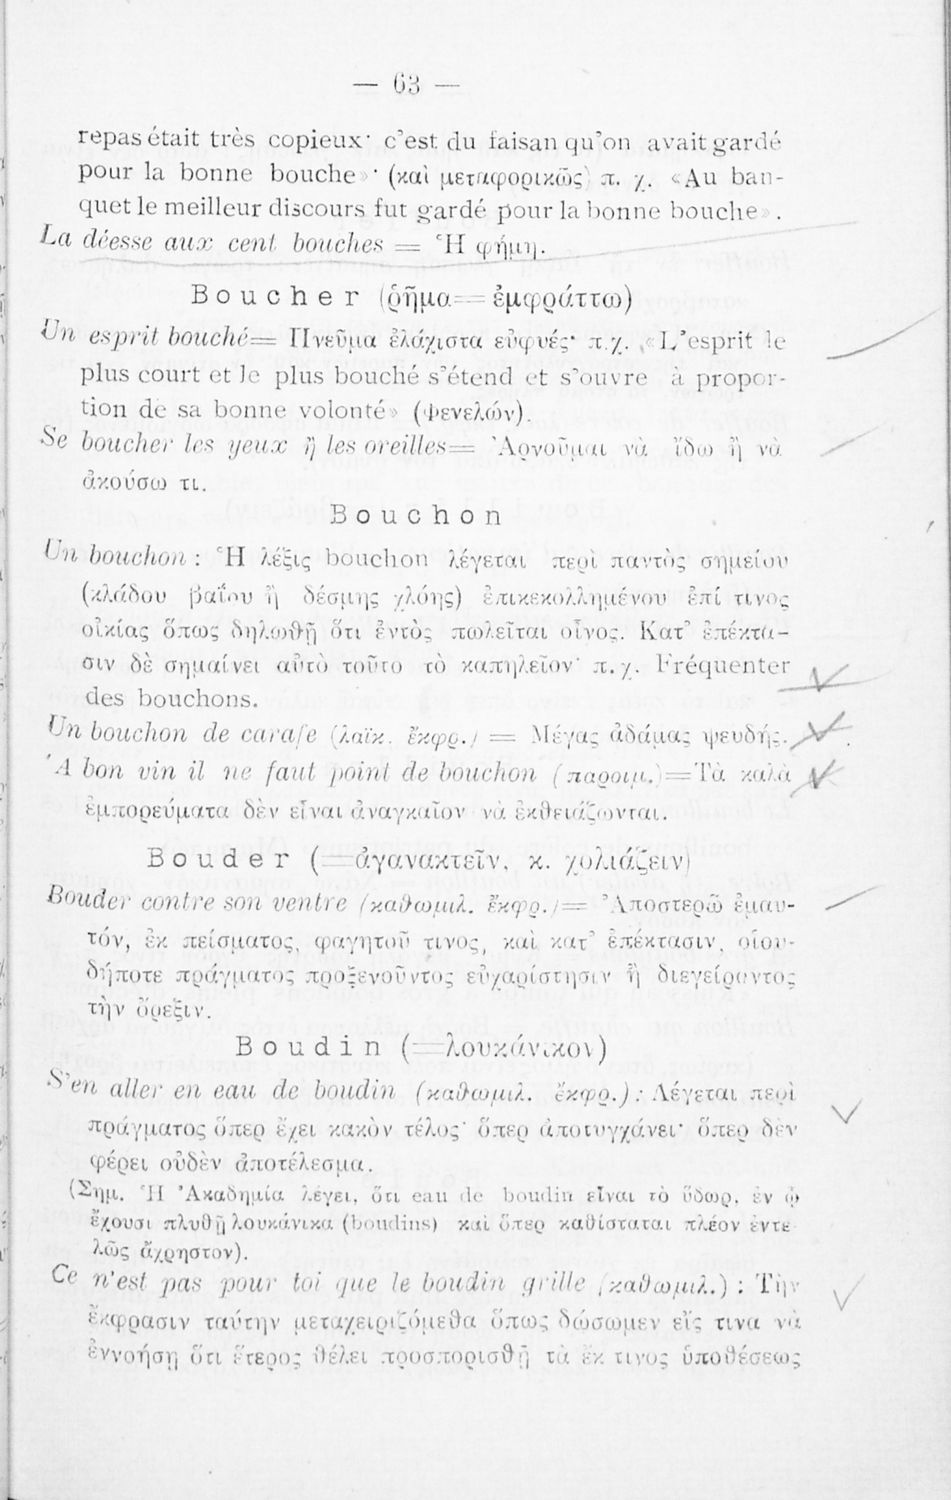 — 63 —
repas était très copieux· c'est du faisan qu'on avait gardé
pour la bonne bouche»· (καὶ μεταφορικῶς) π. χ. «Au ban-
quet le meilleur discours fut gardé pour la bonne bouche».
La déesse aux cent bouches = Ἡ φήμη.
Boucher (ῥῆμα = ἐμφράττω)
Un esprit bouché = Πνεῦμα ἐλάχιστα εὐφυές· π.χ. «L'esprit le
plus court et le plus bouché s'étend et s'ouvre à propor-
tion de sa bonne volonté» (Φενελών).
Se boucher les yeux ἢ les oreilles = Ἀρνοῦμαι νὰ ἴδω ἢ νὰ
ἀκούσω τι.
Bouchon
Un bouchon : Ἡ λέξις bouchon λέγεται περὶ παντὸς σημείου
(κλάδου βαΐου ἢ δέσμης χλόης) ἐπικεκολλημένου ἐπί τινος
οἰκίας ὅπως δηλωθῇ ὅτι ἐντὸς πωλεῖται οἶνος. Κατ' ἐπέκτα-
σιν δὲ σημαίνει αὐτὸ τοῦτο τὸ καπηλεῖον· π.χ. Fréquenter
des bouchons.
Un bouchon de carafe (λαϊκ. ἔκφρ.) = Μέγας ἀδάμας ψευδής.
Ἀ bon vin il ne faut point de bouchon (παροιμ.) = Τὰ καλὰ
ἐμπορεύματα δὲν εἶναι ἀναγκαῖον νὰ ἐκθειάζωνται.
Bouder (= ἀγανακτεῖν, κ. χολιάζειν)
Bouder contre son ventre (καθωμιλ. ἔκφρ.) = Ἀποστερῶ ἐμαυ-
τόν, ἐκ πείσματος, φαγητοῦ τινος, καὶ κατ' ἐπέκτασιν, οἱου-
δήποτε πράγματος προξενοῦντος εὐχαρίστησιν ἢ διεγείροντος
τὴν ὄρεξιν.
Boudin (= λουκάνικον)
S'en aller en eau de boudin (καθωμιλ. ἔκφρ.) : Λέγεται περὶ
πράγματος ὅπερ ἔχει κακὸν τέλος· ὅπερ ἀποτυγχάνει· ὅπερ δὲν
φέρει οὐδὲν ἀποτέλεσμα.
(Σημ. Ἡ Ἀκαδημία λέγει, ὅτι eau de boudin εἶναι τὸ ὕδωρ, ἐν ᾧ
ἔχουσι πλυθῇ λουκάνικα (boudins) καὶ ὅπερ καθίσταται πλέον ἐντε
λῶς ἄχρηστον).
Ce n'est pas pour toi que le boudin grille (καθωμιλ.) : Τὴν
ἔκφρασιν ταύτην μεταχειριζόμεθα ὅπως δώσωμεν εἴς τινα νὰ
ἐννοήσῃ ὅτι ἕτερος θέλει προσπορισθῇ τὰ ἐκ τινος ὑποθέσεως